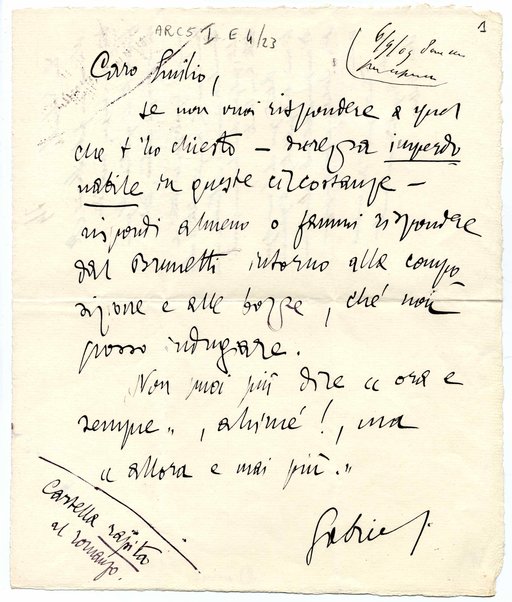 ARC5 I E 4/23
1
6/9/09
Caro Emilio,
se non vuoi rispondere a quel
che t'ho chiesto — durezza imperdo
nabile in queste circostanze —
rispondi almeno o fammi rispondere
dal Brunetti intorno alla compo
sizione e alle bozze, ché non
posso indugiare.
Non puoi più dire « ora e
sempre », ahimé!, ma
« allora e mai più. »
Gabriel
Cartella rapita
al romanzo.